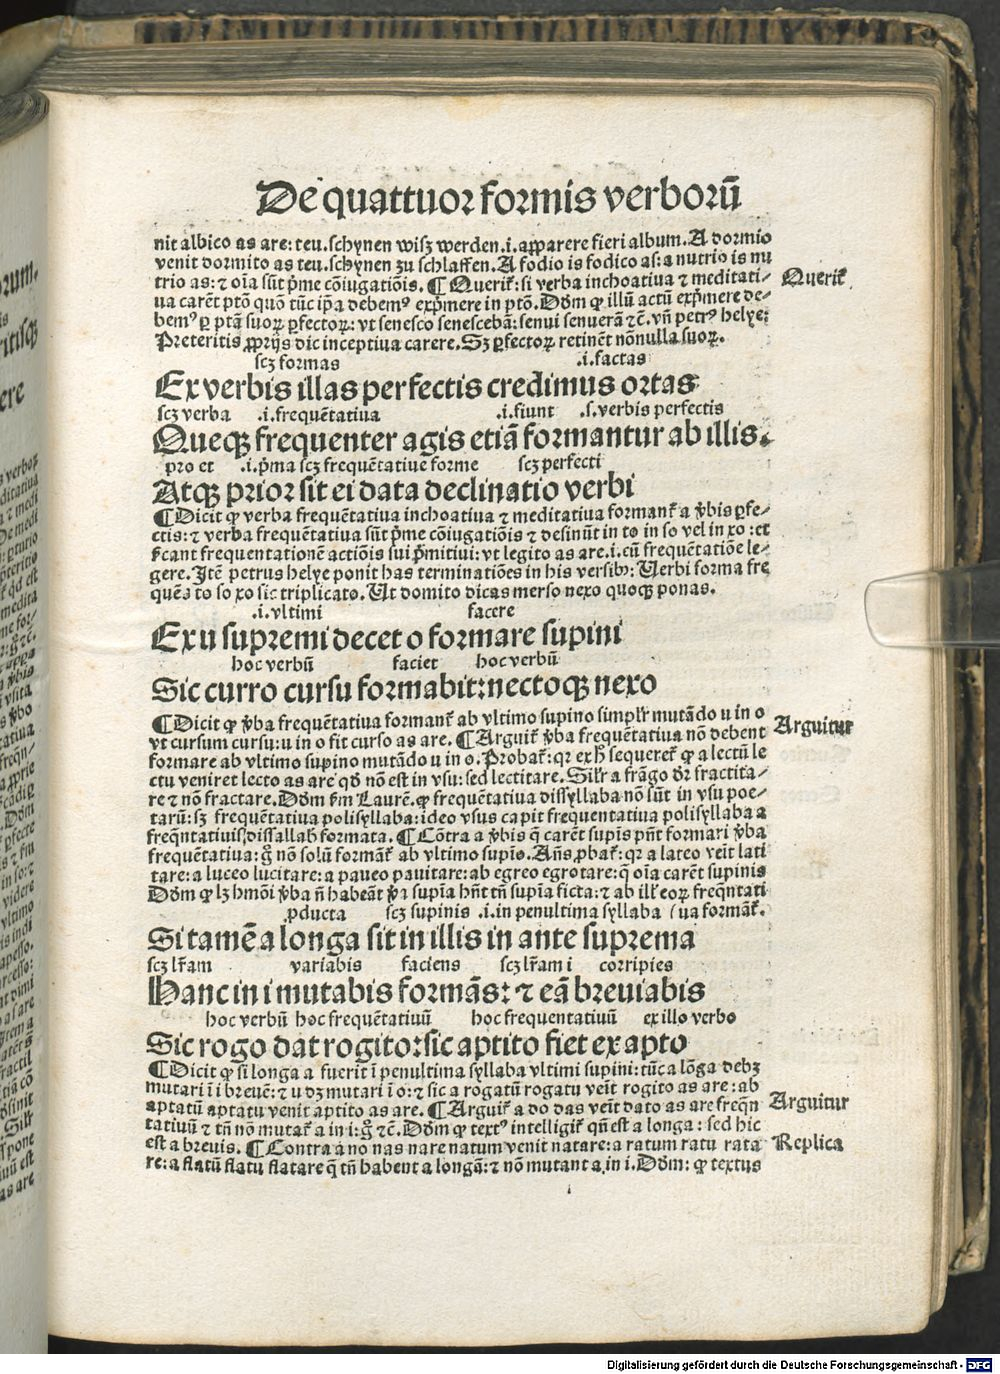 De quattuor formis verborū
nit albico as are: teu. schynen wisz werden .i. apparere fieri album. A dormio
venit dormito as teu. schynen zu schlaffen. A fodio is fodico as: a nutrio is nu
trio as: ⁊ oīa sūt p̄me cōiugatiōis. ¶ Querit᷑: si verba inchoatiua ⁊ meditati-
ua carēt ptō quō tūc ip̄a debemꝰ exp̄mere in ptō. Dōm ꝙ illū actū exp̄mere de-
bemꝰ ꝑ ptā suoꝝ ꝑfectoꝝ: vt senesco senescebā: senui senuerā ⁊c̄. vn̄ petrꝰ helye:
Preteritis ꝓprijs dic inceptiua carere. Sꝫ ꝑfectoꝝ retinēt nōnulla suoꝝ.
Querit᷑
scꝫ formas .i. factas
Ex verbis illas perfectis credimus ortas
scꝫ verba .i. frequētatiua .i. fiunt .s. verbis perfectis
Queqꝫ frequenter agis etiā formantur ab illis.
pro et .i. p̄ma scꝫ frequētatiue forme scꝫ perfecti
Atqꝫ prior sit ei data declinatio verbi
¶ Dicit ꝙ verba frequētatiua inchoatiua ⁊ meditatiua formant᷑ a v̄bis ꝑfe-
ctis: ⁊ verba frequētatiua sūt p̄me cōiugatiōis ⁊ desinūt in to in so vel in xo: et
s̄cant frequentationē actiōis sui p̄mitiui: vt legito as are .i. cū frequētatiōe le-
gere. Itē petrus helye ponit has terminatiōes in his versibꝰ: Uerbi forma fre
quēs to so xo sic triplicato. Ut domito dicas merso nexo quoqꝫ ponas.
.i. vltimi facere
Ex u supremi decet o formare supini
hoc verbū faciet hoc verbū
Sic curro cursu formabit: nectoqꝫ nexo
¶ Dicit ꝙ v̄ba frequētatiua formant᷑ ab vltimo supino simplr̄ mutādo u in o
vt cursum cursu: u in o fit curso as are. ¶ Arguit᷑ v̄ba frequētatiua nō debent
Arguitur
formare ab vltimo supino mutādo u in o. Probat᷑: qꝛ ex hꝭ sequeret᷑ ꝙ a lectū le
ctu veniret lecto as are qd̄ nō est in vsu: sed lectitare. Silr̄ a frāgo dr̄ fractita-
re ⁊ nō fractare. Dōm s̄m Laurē. ꝙ frequētatiua dissyllaba nō sūt in vsu poe-
tarū: sꝫ frequētatiua polisyllaba: ideo vsus capit frequentatiua polisyllaba a
freq̄ntatiuis dissallabꝭ formata. ¶ Cōtra a v̄bis q̄ carēt supīs pn̄t formari v̄ba
frequētatiua: g̊ nō solū formāt᷑ ab vltimo supīo. Añs ꝓbat᷑: qꝛ a lateo veīt lati
tare: a luceo lucitare: a paueo pauitare: ab egreo egrotare: q̄ oīa carēt supinis
Dōm ꝙ lꝫ hmōi v̄ba n̄ habeāt v̄a supīa hn̄t tn̄ supīa ficta: ⁊ ab ill' eoꝝ freq̄ntati
ꝓducta scꝫ supinis .i. in penultima syllaba (ua formāt᷑.
Si tamē a longa sit in illis in ante suprema
scꝫ lr̄am variabis faciens scꝫ lr̄am i corripies
Hanc in i mutabis formās: ⁊ eā breuiabis
hoc verbū hoc frequētatiuū hoc frequentatiuū ex illo verbo
Sic rogo dat rogito: sic aptito fiet ex apto
¶ Dicit ꝙ si longa a fuerit ī penultima syllaba vltimi supini: tūc a lōga debꝫ
mutari ī i breuē: ⁊ u dꝫ mutari ī o: ⁊ sic a rogatū rogatu veīt rogito as are: ab
aptatū aptatu venit aptito as are. ¶ Arguit᷑ a do das veīt dato as are freq̄n
Arguitur
tatiuū ⁊ tn̄ nō mutat᷑ a in i: g̊ ⁊c̄. Dōm ꝙ textꝰ intelligit᷑ qn̄ est a longa: sed hic
est a breuis. ¶ Contra a no nas nare natum venit natare: a ratum ratu rata
Replica
re: a flatū flatu flatare q̄ tn̄ habent a longā: ⁊ nō mutant a in i. Dōm: ꝙ textus
Digitalisierung gefördert durch die Deutsche Forschungsgemeinschaft - DFG